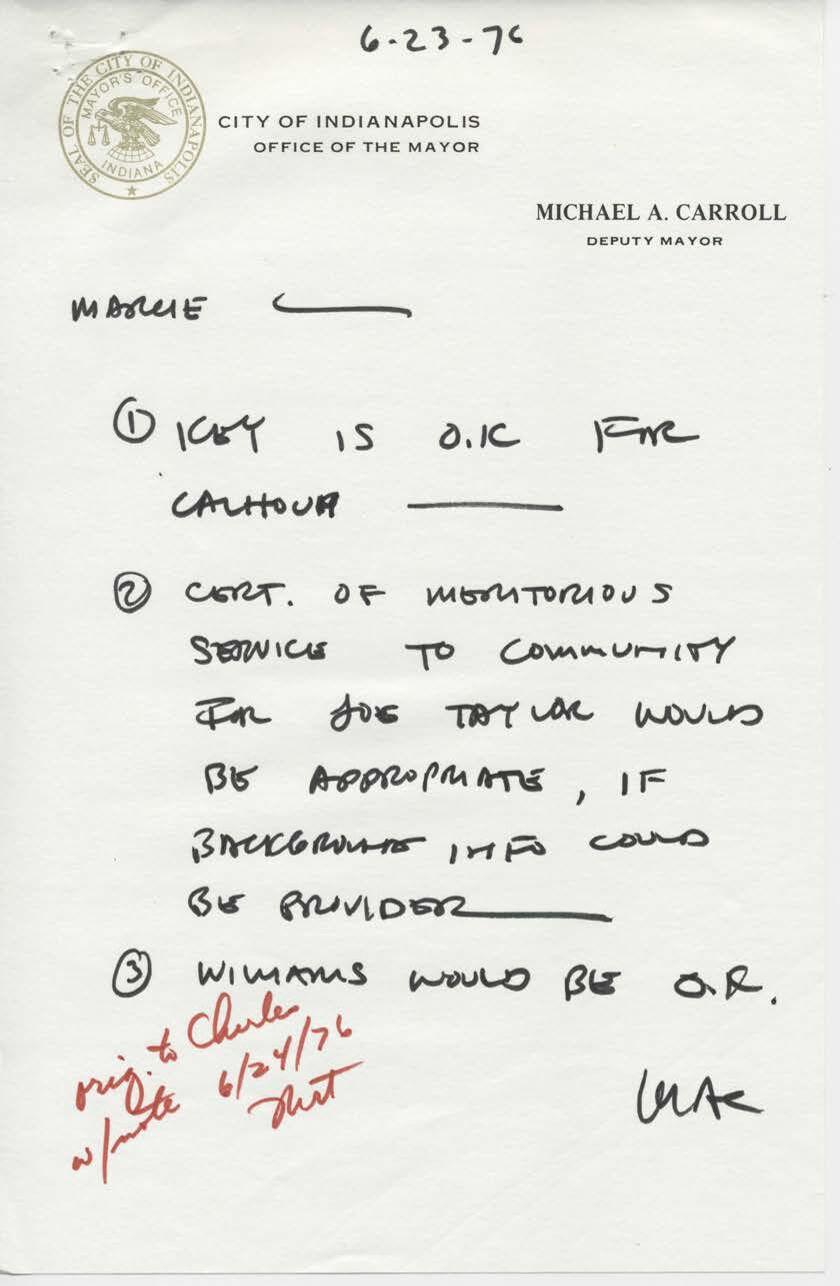 6-23-76
SEAL OF THE CITY OF INDIANAPOLIS
MAYOR'S OFFICE
INDIANA
CITY OF INDIANAPOLIS
OFFICE OF THE MAYOR
MICHAEL A. CARROLL
DEPUTY MAYOR
MARCIE —
① KEY IS O.K FOR
CALHOUN —
② CERT. OF MERITORIOUS
SERVICE TO COMMUNITY
FOR JOE TAYLOR WOULD
BE APPROPRIATE, IF
BACKGROUND INFO COULD
BE PROVIDED —
③ WILLIAMS WOULD BE O.K.
orig. to Charles
w/note 6/24/76
MAC